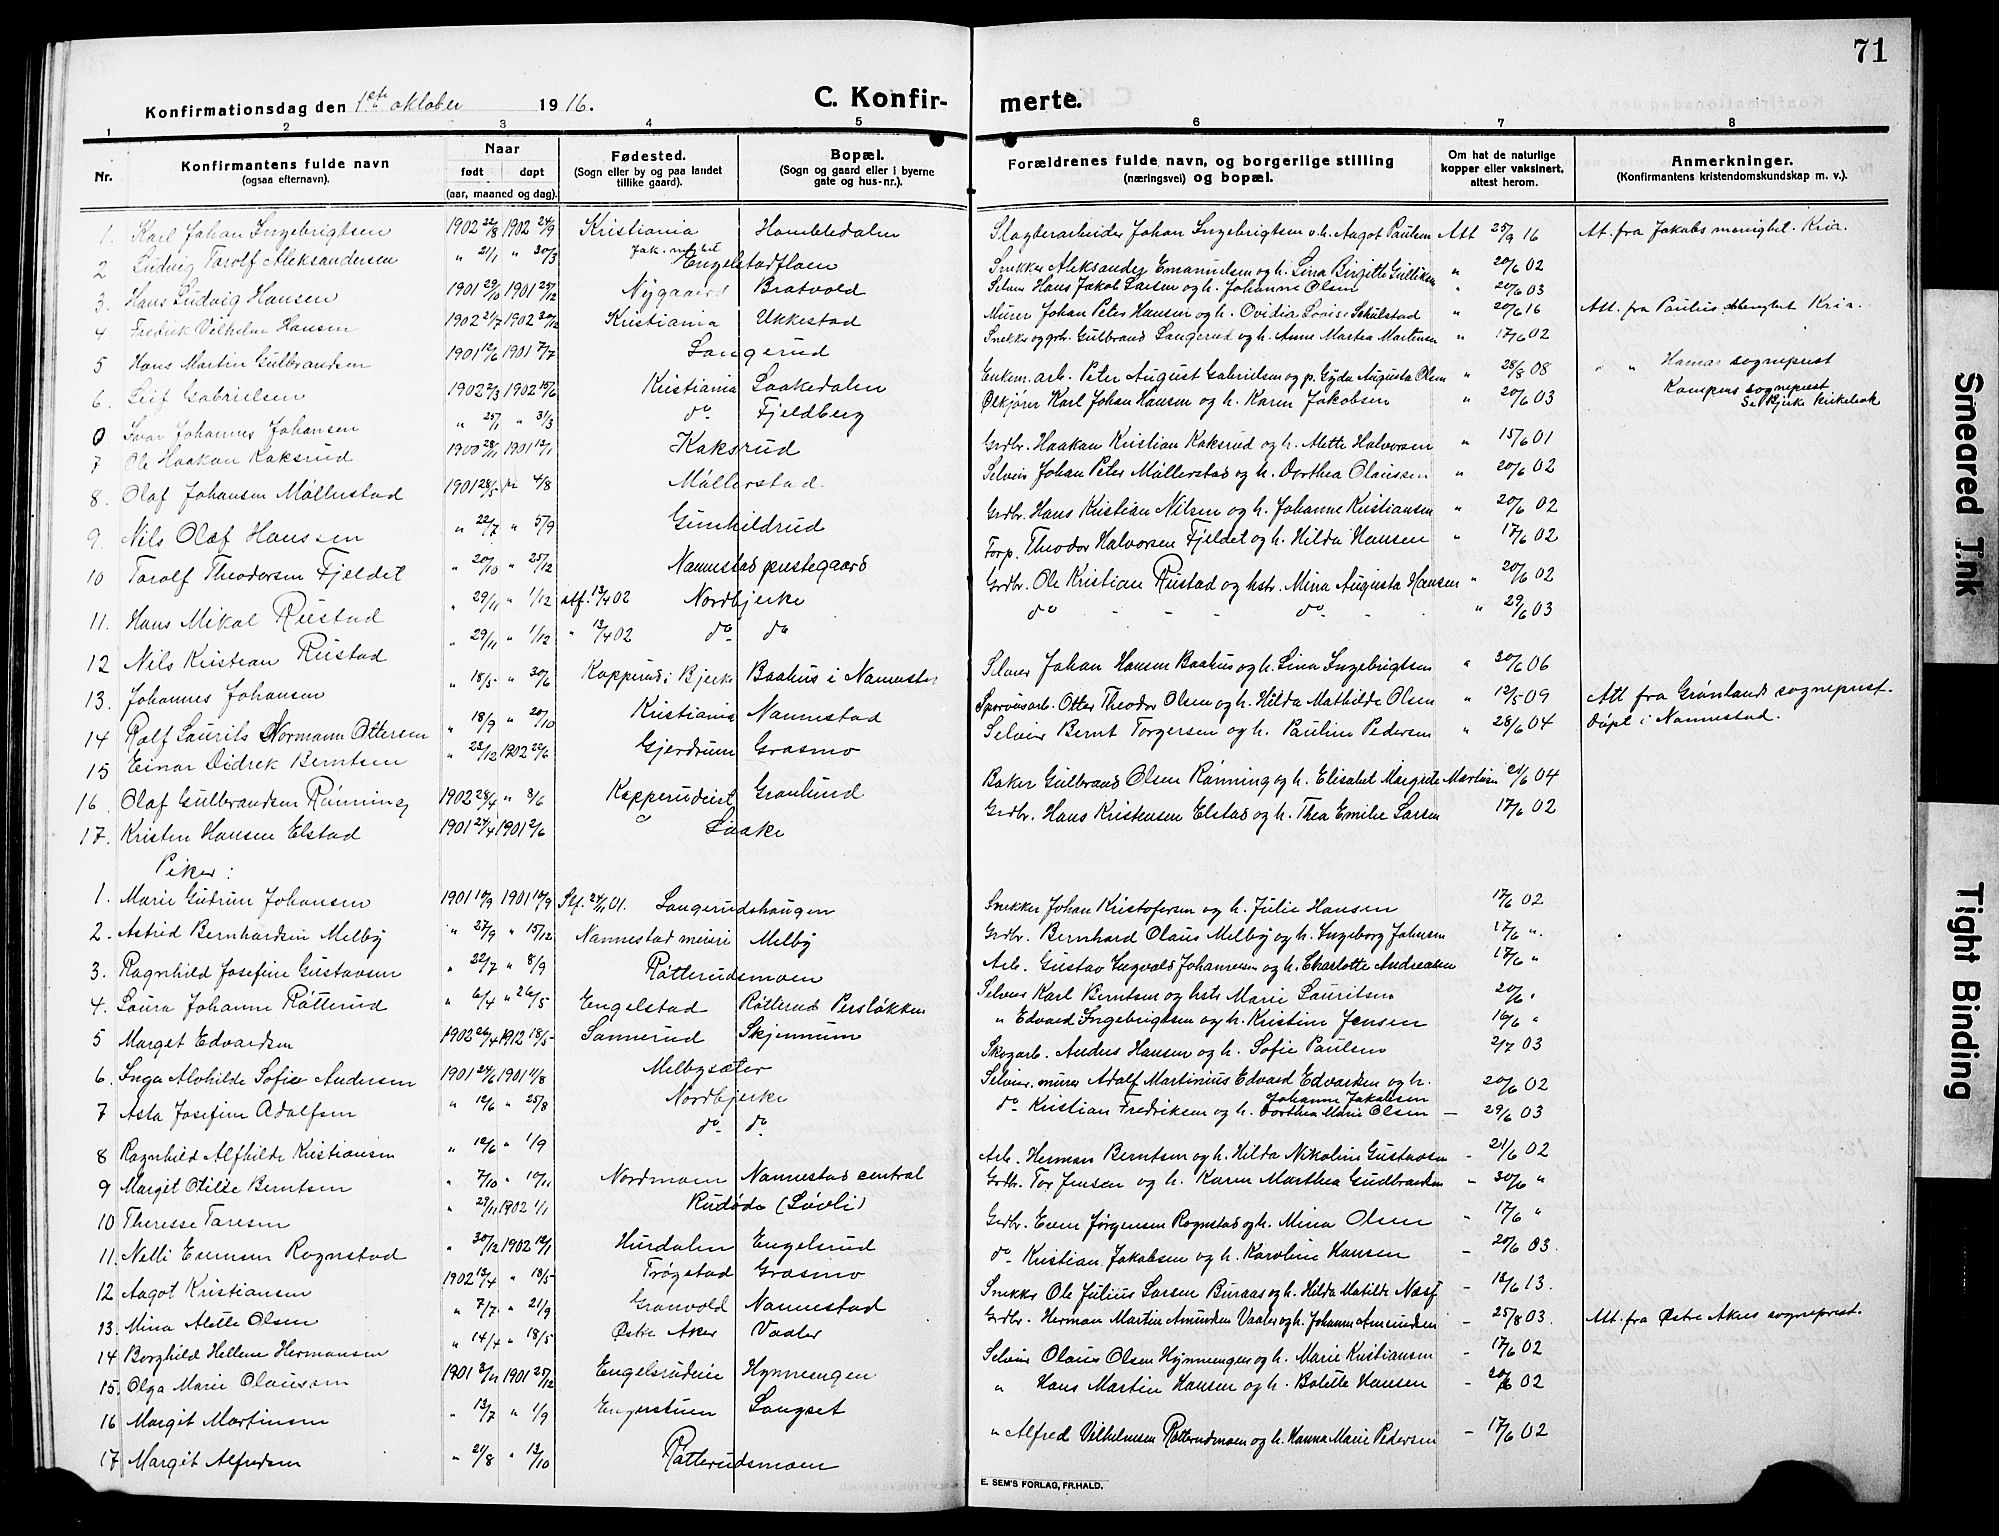 71
Konfirmationsdag den 1ste oktober 1916. C. Konfirmerte.
1 2 3 4 5 6 7 8
Nr. Konfirmantens fulde navn (ogsaa efternavn). Naar født døpt (aar, maaned og dag). Fødested. (Sogn eller by og paa landet tillike gaard). Bopæl. (Sogn og gaard eller i byerne gate og hus-nr.). Forældrenes fulde navn, og borgerlige stilling (næringsvei) og bopæl. Om hat de naturlige kopper eller vaksinert, altest herom. Anmerkninger. (Konfirmantens kristendomskundskap m. v.).
1. Karl Johan Ingebrigtsen 1902 22/8 1902 24/9 Kristiania Jak. meghet Hambledalen Slagterarbeider Johan Ingebrigtsen o. h. Aagot Paulsen Att 25/9 16 At. fra Jakobs menighet. Kria.
2 Ludvig Tarolf Aleksandersen " 21/1 " 30/3 Engelstadfloen Snekker Aleksander Emanuelsen og h. Lina Birgitte Gulliksen " 20/6 02
3. Hans Ludvig Hansen 1901 29/10 1901 25/12 Nygaard Bratvold Selveier Hans Jakob Larsen og h. Johanne Olsen " 20/6 03
4 Fredrik Vilhelm Hansen 1902 21/7 1902 30/12 Kristiania Ukkestad Murer Johan Peter Hansen og h. Ovidia Lovise Skulstad " 20/6 16 Att. fra Paulus Menighet Kria.
5 Hans Martin Gulbrandsen 1901 12/6 1901 7/7 Langerud Snekker og grb. Gulbrand Langerud og h. Anne Martea Martinsen " 17/6 02
6. Leif Gabrielsen 1902 2/3 1902 15/6 Kristiania Laakedalen Enkem. arb. Peter August Gabrielsen og p. Gyda Augusta Olsen " 28/8 08 " " Hamar sogneprest
0 Ivar Johannes Johansen " 25/1 " 31/3 do Fjeldberg Ølkjører Karl Johan Hansen og h. Karen Jakobsen " 20/6 03 Kampens sogneprest Se Bjerke kirkebok
7 Ole Haakan Kaksrud 1900 28/11 1901 13/1 Kaksrud Grdbr. Haakan Kristian Kaksrud og h. Alette Halvorsen " 15/6 01
8. Olaf Johansen Møllerstad 1901 28/5 4/8 Møllerstad. Selveier Johan Peter Møllerstad og h. Dorthea Olaussen " 20/6 02
9. Nils Olaf Hanssen " 22/7 " 5/9 Gunhildrud Grdbr. Hans Kristian Nilsen og h. Johanne Kristiansen " 20/6 02
10 Tarolf Theodorsen Fjeldet " 20/10 " 25/12 Nannestad prestegaard Forp. Theodor Halvorsen Fjeldet og h. Hilda Hansen " 17/6 02
11. Hans Mikal Rustad " 29/11 " 1/12 stf. 13/4 02 Nordbjerke Grdbr. Ole Kristian Rustad og hstr. Mina Augusta Hansen " 20/6 02
12 Nils Kristian Rustad " 29/11 " 1/12 " 13/4 02 do do do - - - do - " 29/6 03
13. Johannes Johansen " 18/5 " 30/6 Kopperud i Bjerke Baahus i Nannestad Selveier Johan Hansen Baahus og h. Lina Ingebrigtsen " 30/6 06
14 Rolf Laurits Normann Ottersen " 18/9 " 20/10 Kristiania Nannestad Sporveisarb. Otter Theodor Olsen og h. Hilda Mathilde Olsen " 12/5 09 Att fra Grønlands sogneprest.
15 Einar Didrek Berntsen " 23/12 1902 22/6 Gjerdrum Grasmo Selveier Bernt Torgersen og h. Pauline Pedersen " 28/6 04 Døpt i Nannestad.
16. Olaf Gulbrandsen Rønning 1902 28/4 " 8/6 Kopperudeiet Granlund Baker Gulbrand Olsen Rønning og h. Elisabet Margrete Martinsen 21/6 04
17. Kristen Hansen Elstad 1901 24/4 1901 2/6 Laake Grdbr. Hans Kristensen Elstad og h. Thea Emilie Larsen 17/6 02
Piker:
1. Marie Gudrun Johansen 1901 10/9 1901 10/9 Stf. 24/11 01. Langerudshaugen Snekker Johan Kristofersen og h. Julie Hansen 17/6 02
2. Astrid Bernhardsen Melby " 27/9 " 15/12 Nannestad meieri Melby Grdbr. Bernhard Olaus Melby og h. Ingeborg Johnsen 17/6 ".
3. Ragnhild Josefine Gustavsen " 22/7 " 8/9 Rotterudsmoen Arb. Gustav Ingvald Johannesen og h. Charlotte Andreasen 17/6 "
4. Laura Johanne Røtterud " 6/4 " 26/5 Engelstad Røtterud Persløkken Selveier Karl Berntsen og hstr Marie Lauritsen 20/6 "
5 Marget Edvardsen 1902 26/4 1912 18/5 Sannerud Skjennum " Edvard Ingebrigtsen og h. Kristine Jensen 16/6 "
6. Inga Alvhilde Sofie Andersen 1901 24/6 1901 11/8 Melbysæter Skogarb. Anders Hansen og h. Sofie Paulsen 2/7 03
7 Asta Josefine Adolfsen " 12/6 " 25/8 Nordbjerke Selveier. murer Adolf Martinius Edvard Edvardsen og h. Johanne Jakobsen 20/6 02
8 Ragnhild Alfhilde Kristiansen " 12/6 " 1/9 do do do Kristian Fredriksen og h. Dorthea Marie Olsen - 29/6 03
9 Margit Otilie Berntsen " 7/10 " 10/11 Nordmoen Nannestad central Arb. Herman Berntsen og h. Hilda Nikoline Gustavsen - 21/6 02
10 Theresse Taresen " 29/11 1902 1/1 Rudøde (Løvli) Grdbr. Tor Jensen og h. Karen Marthea Gudbrandsen - 30/6 "
11. Nelli Evensen Rognstad " 30/12 1902 12/1 Hurdalen Engelsrud Grdbr. Even Jørgensen Rognstad og h. Mina Olsen " 17/6 "
12 Aagot Kristiansen 1902 13/4 " 18/5 Trøgstad Grasmo do Kristian Jakobsen og h. Karoline Hansen - 20/6 03.
13. Mina Alette Olsen " 7/7 " 21/9 Granvold Nannestad Snekker Ole Julius Larsen Buraas og h. Hilda Matilde Næss - 18/6 13.
14 Borghild Hellene Hermansen " 14/4 " 18/5 Østre Aker Vaaler Grdbr. Herman Martin Amundsen Vaaler og h. Johanne Amundsen - 25/8 03. Att. fra Østre Akers sogneprest.
15. Olga Marie Olaussen 1901 3/11 1901 25/12 Engelsrudeie Hynnengen Selveier Olaus Olsen Hynnengen og h. Marie Kristiansen - 17/6 02
16 Margit Martinsen " 13/7 " 1/9 Engerstuen Langset " Hans Martin Hansen og h. Bolette Hansen - 20/6 02
17 Margit Alfredsen " 21/8 " 13/10 Rotterudsmoen " Alfred Vilhelmsen Rotterudmoen og h. Hanna Marie Pedersen - 17/6 02
E. SEM'S FORLAG, FR.HALD.
Smeared Ink
Tight Binding